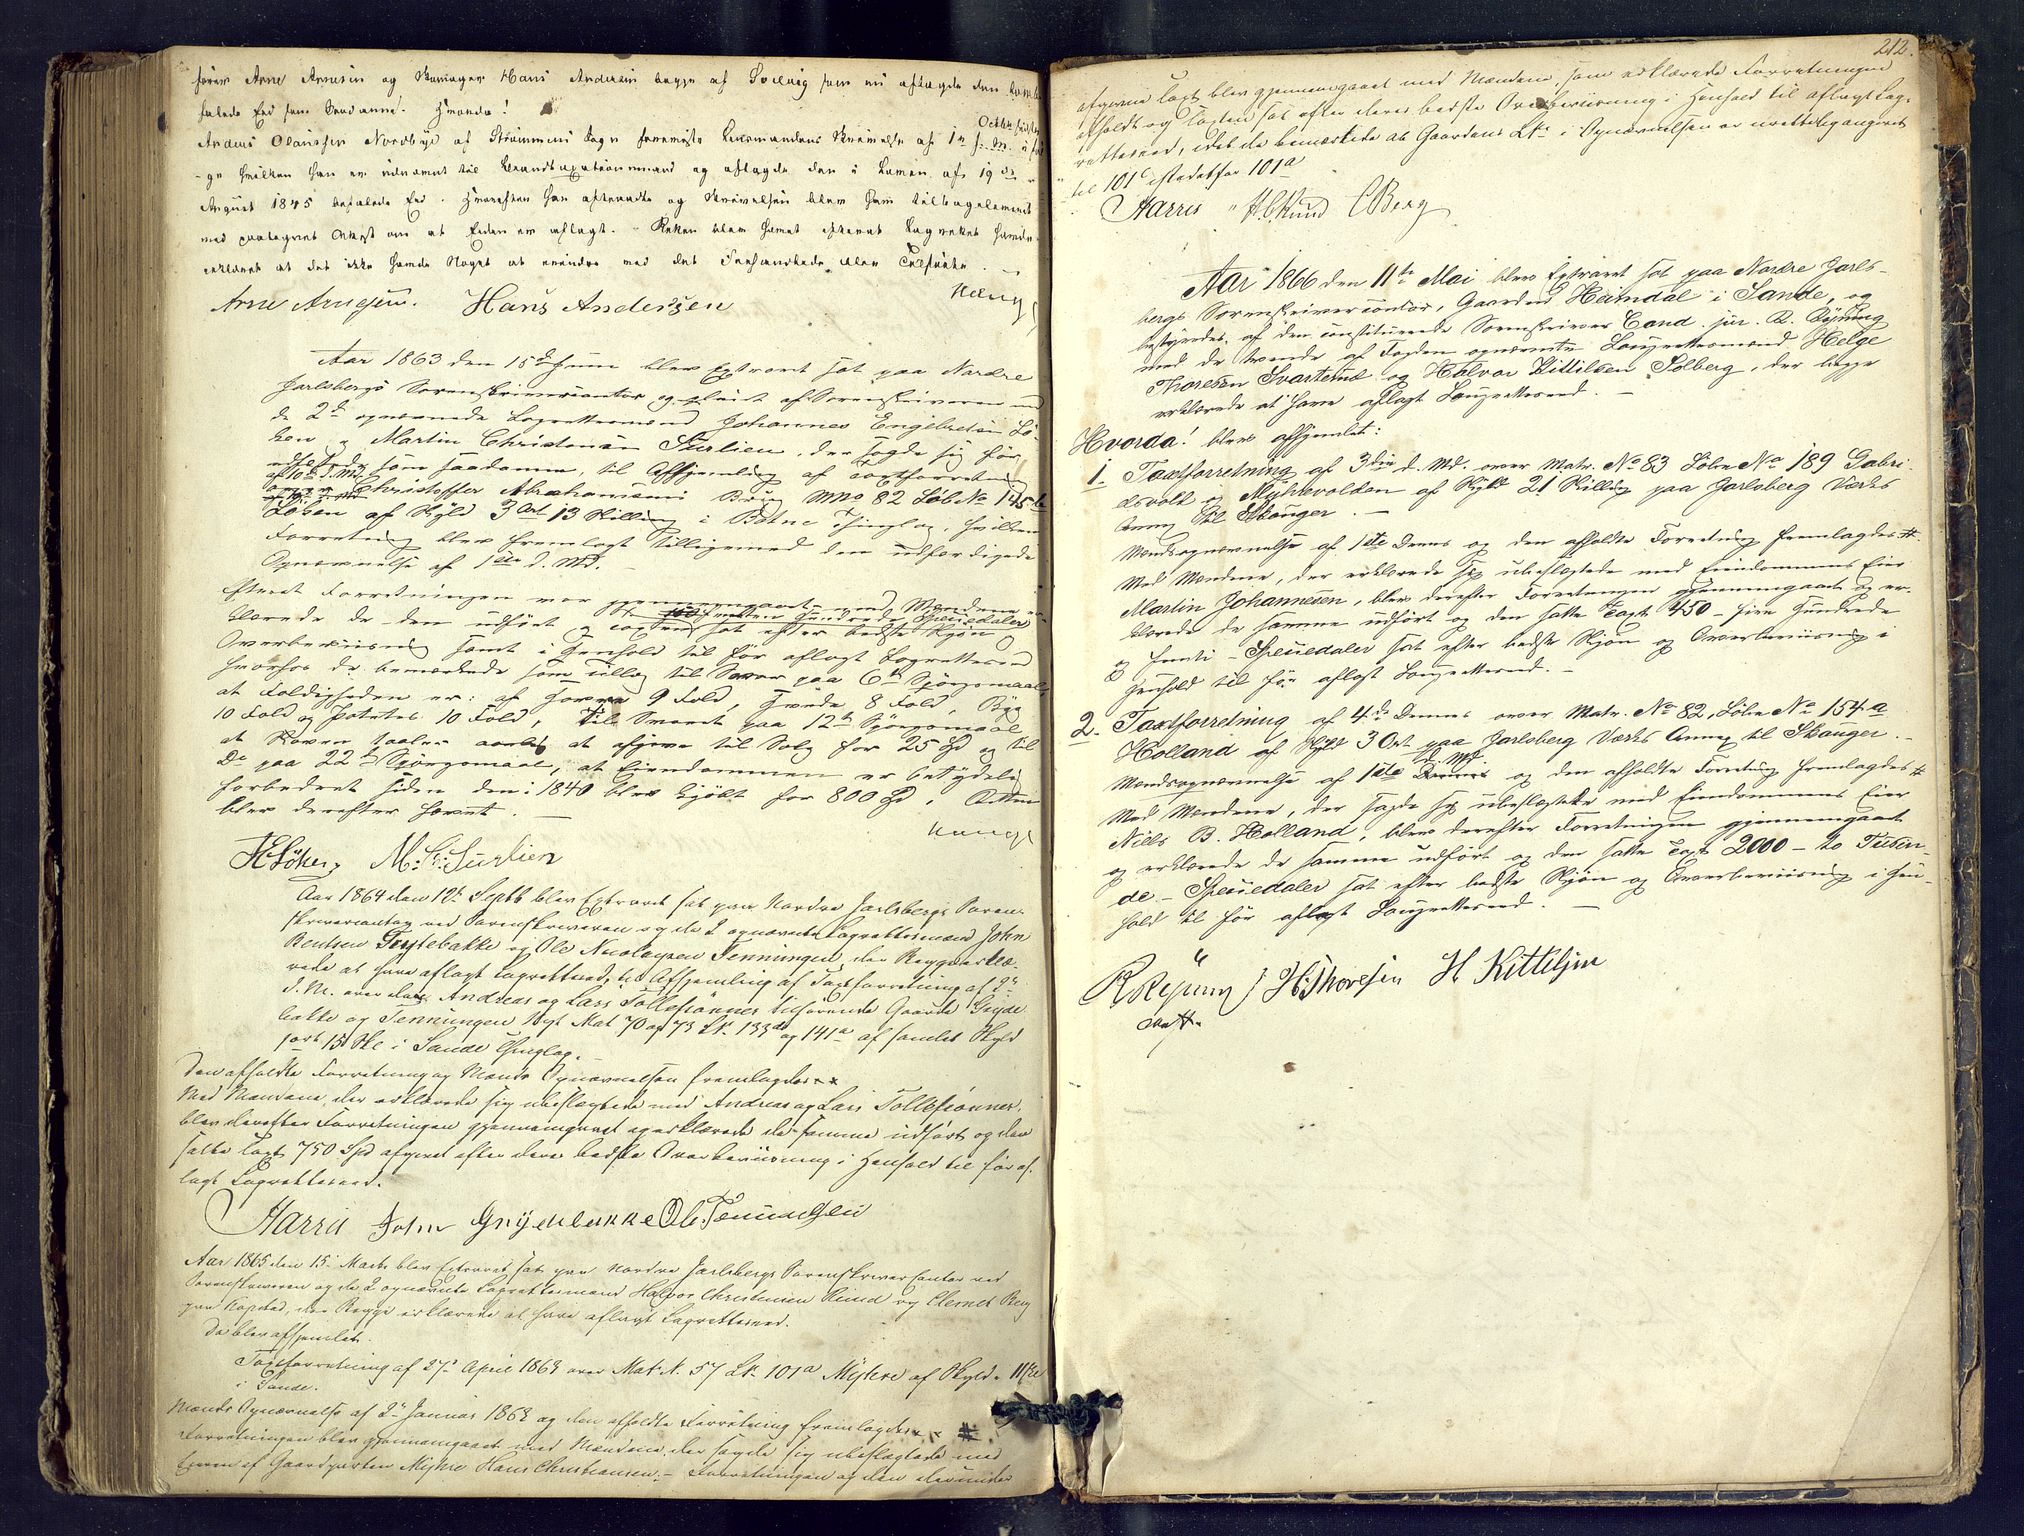 fører Arne Arnesen og Skomager Hans Andersen begge af Svelvig som nu aflagde den
falede Eed som Brandmænd. Hvorda!
Anders Olaussen Nordbye af Strømmens Sogn fremviste Lensmandens Skrivelse af 1ste f. M.
ge hvilken han er udnævnt til Brandtaxationsmand og aflagde den i Loven af 19de
August 1845 befalede Eed. Hvorefter han aftraadte og Skrivelsen blev ham tilbageleveret
med paategnet Attest om at Eeden er aflagt. Retten blev hævet efterat Lagrettet havde
erklæret at det ikke havde Noget at erindre med det Forhandlede eller Tilførte.
Arne Arnesen. Hans Andersen
Aar 1863 den 15de Juni blev Extraret sat paa Nordre
Jarlsbergs Sorenskrivercontor og pleiet af Sorenskriveren med
de 2de opnævnede Lagrettesmænd Johannes Engebretsen Sø-
ken og Martin Christensen Surlien, der sagde sig før
edfæstede som saadanne, til Afhjemling af Taxtforretning
af 10de d. Md.
over Christoffer Abrahamsens Brug M No 82 Løbe No 145
Løsen af Skyld 3 Ort 13 Skilling i Botne Thinglag, hvilken
Forretning blev fremlagt tilligemed den udfærdigede
Opnævnelse af 1ste d. Md.
Efterat Forretningen var gjennemgaaet med Mændene er-
klærede de den udført og Taxten sat efter bedste Skjøn
Overbeviisning samt i Henhold til før aflagt Lagrettesed
hvorhos de bemærkede som Tillæg til Svar paa 6te Spørgsmaal
at Foldigheden er: af Havre 9 Fold, Hvede 8 Fold, Byg
10 Fold og Potetes 10 Fold, Til Svaret paa 12te Spørgsmaal
at Skoven taaler aarlig at afgive til Salg for 25 Spd og til
Do paa 22de Spørgsmaal, at Eiendommen er betydelig
forbedret siden den i 1840 blev kjøbt for 800 Spd. Retten
blev derefter hævet.
M. C. Surlien
Aar 1864 den 12te Septb blev Extraret sat paa Nordre Jarlsbergs Soren-
skrivercontor ved Sorenskriveren og de 2 opnævnte Lagrettesmænd John
Bentsen Grytebakke og Ole Nicolaysen Tenningen, der Begge erklæ-
rede at have aflagt Lagrettesed, til Afhjemling af Taxtforretning af 2de
d. M. over de Andreas og Lars Tollefsønner tilhørende Gaarde Gryde
bakke og Tenningen Nyt Mat 70 og 73 Lk. 133 og 141a af samlet Skyld
i Sande Thinglag.
Den afholdte Forretning og Mænds Opnævnelsen fremlagdes
Med Mændene, der erklærede sig ubeslægtede med Andreas og Lars Tollefsønner,
blev derefter Forretningen gjennemgaaet og erklærede de samme udført og den
satte Taxt 750 Spd afgivet efter deres bedste Overbeviisning i Henhold til før af-
lagt Lagrettesed.
Harris John Grydebakke Ol. Tenningen
Aar 1865 den 15. Marts blev Extraret sat paa Nordre Jarlsbergs Sorenskrivercontor ved
Sorenskriveren og de 2 opnævnte Lagrettesmænd Halvor Christensen Rund og Clemet Berg
paa Kopstad, der Begge erklærede at have aflagt Lagrettesed.
Da blev afhjemlet.
Taxtforretning af 27de April 1863 over Mat. N. 57 Lk. 101a Myhre af Skyld
i Sande.
Mænds Opnævnelse af 2den Januar 1863 og den afholdte Forretning fremlagdes #
Forretningen blev gjennemgaaet med Mændene, der sagde sig ubeslægtede med
Eieren af Gaardparten Myhre Hans Christiansen. Forretningen og den derunder
212.
afgivne Taxt blev gjennemgaaet med Mændene, som erklærede Forretningen
afholdt og Taxten sat efter deres bedste Overbeviisning i Henhold til aflagt Lag-
rettesed, idet de bemærkede at Gaardens Lk. i Opnævnelsen er urettelig angivet
til 101c istedetfor 101a
Harris HCRund CBerg
Aar 1866 den 11te Mai blev Extraret sat paa Nordre Jarls-
bergs Sorenskrivercontor, Gaarden Heimdal i Sande, og
bestyrdes af den constituerede Sorenskriver Cand. jur. R.
med de tvende af Fogden opnævnte Laugrettesmænd Helge
Thoresen Svartsrud og Halvor Kittilsen Solberg, der begge
erklærede at have aflagt Laugrettesed.
Hvorda! blev afhjemlet:
1. Taxtforretning af 3die d. Md. over Matr. No 83 Løbe No 189 Gabri-
elsvolt og Myhrevolden af Skyld 21 Skilling paa Jarlsberg Værks
Annex til Skouger.
Mandsopnævnelse af 1ste Dennes og den afholdte Forretning fremlagdes #.
Med Mændene, der erklærede sig ubeslægtede med Eiendommens Eier
Martin Johannesen, blev derefter Forretningen gjennemgaaet og er-
klærede de samme udført og den satte Taxt 450 – fire Hundrede
og femti – Speciedaler sat efter bedste Skjøn og Overbeviisning i
Henhold til før aflagt Laugrettesed.
2. Taxtforretning af 4de Dennes over Matr. No 82, Løbe No 154a
Holland af Skyld 3 Ort paa Jarlsberg Værks Annex til Skouger.
d. Md.
Mandsopnævnelse af 1ste Dennes og den afholdte Forretning fremlagdes #
Med Mændene, der sagde sig ubeslægtede med Eiendommens Eier
Niels B. Holland, blev derefter Forretningen gjennemgaaet
og erklærede de samme udført og den satte Taxt 2000 – to Tusin-
de – Speciedaler sat efter bedste Skjøn og Overbeviisning i Hen-
hold til før aflagt Laugrettesed.
H. Thoresen H Kittilsen